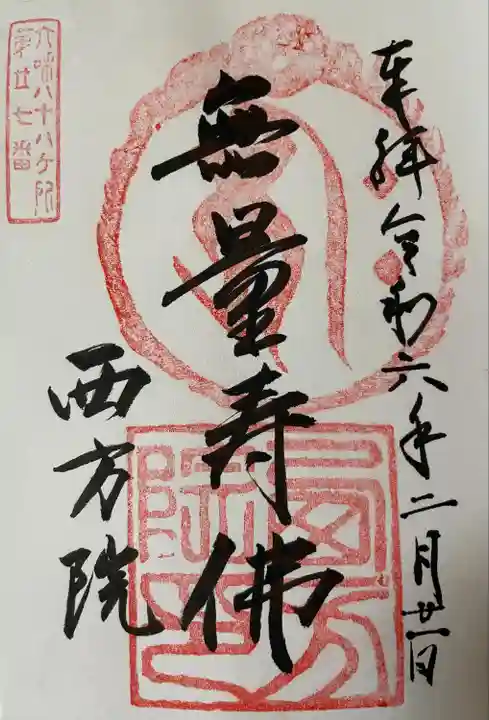 奉拝 令和六年二月廿一日
無量寿佛
西方院
八十八ケ所
第廿七番